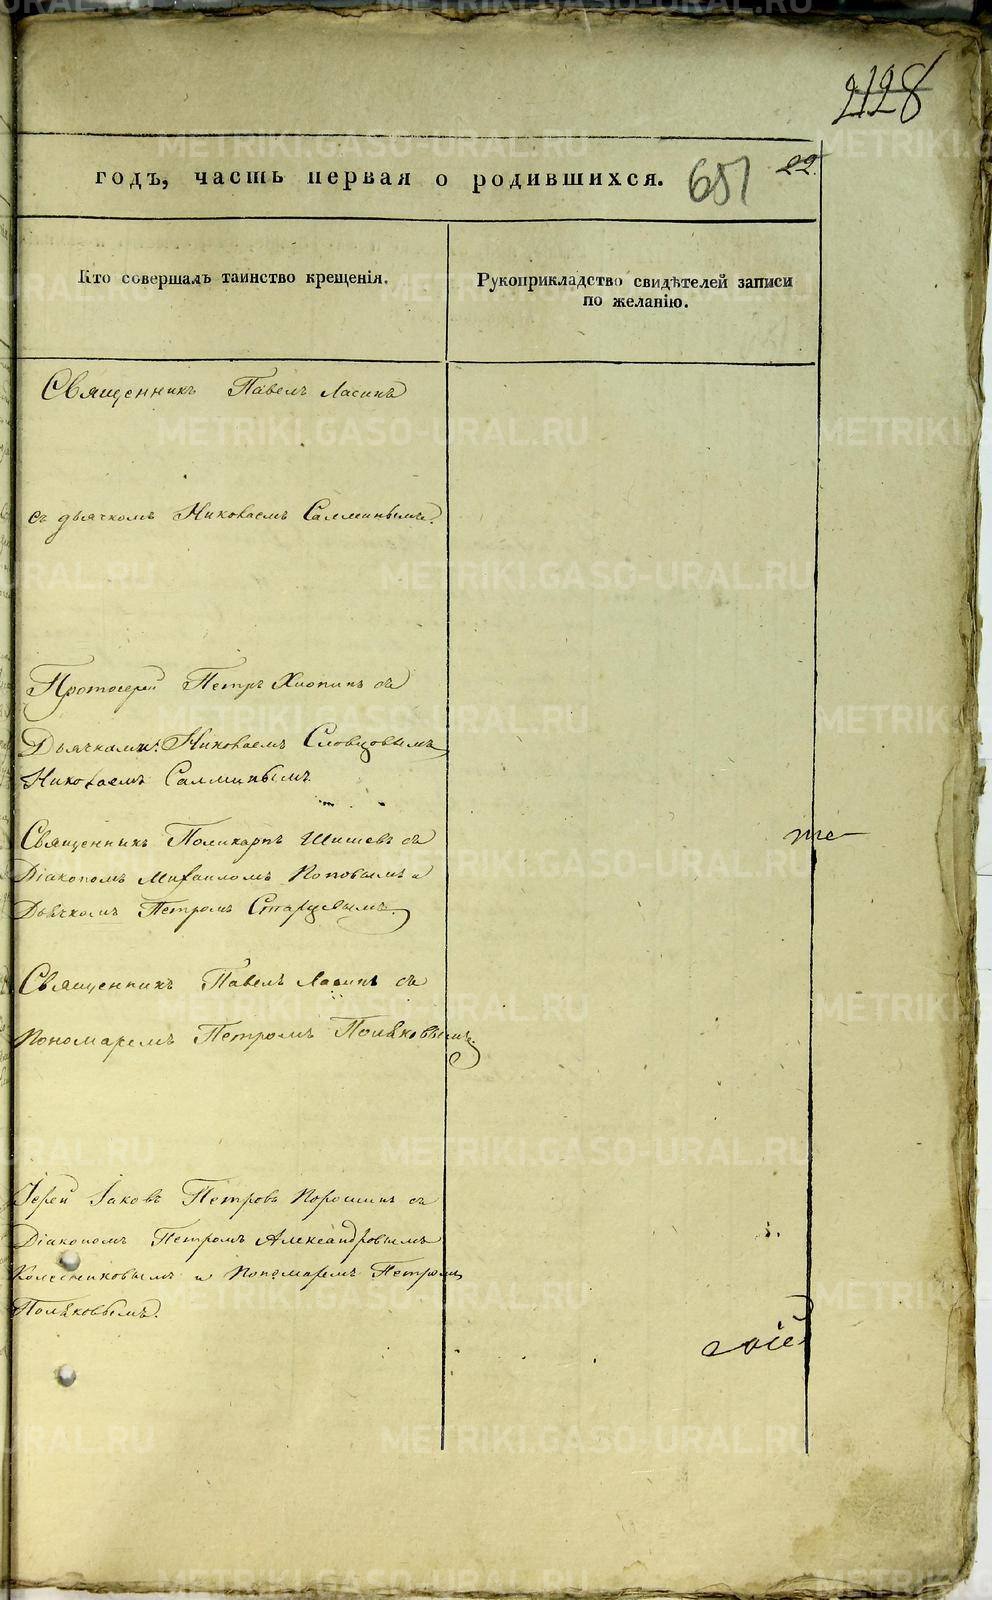 2128
годъ, часть первая о родившихся. 651 22.
Кто совершалъ таинство крещенія.
Рукоприкладство свидѣтелей записи
по желанію.
Священникъ Павелъ Ласинъ
съ дьячкомъ Николаемъ Салминымъ.
Протоіерей Петръ Хлопинъ съ
Дьячками: Николаемъ Словцовымъ
Николаемъ Салминымъ
Священникъ Поликарпъ Шишевъ съ
Діакономъ Михаиломъ Поповымъ и
Дьячкомъ Петромъ Старцевымъ.
Священникъ Павелъ Ласинъ съ
Пономаремъ Петромъ Поляковымъ.
Іерей Іаковъ Петровъ Порошинъ съ
Діакономъ Петромъ Александровымъ
Колесниковымъ и Пономаремъ Петромъ
Поляковымъ.
METRIKI.GASO-URAL.RU